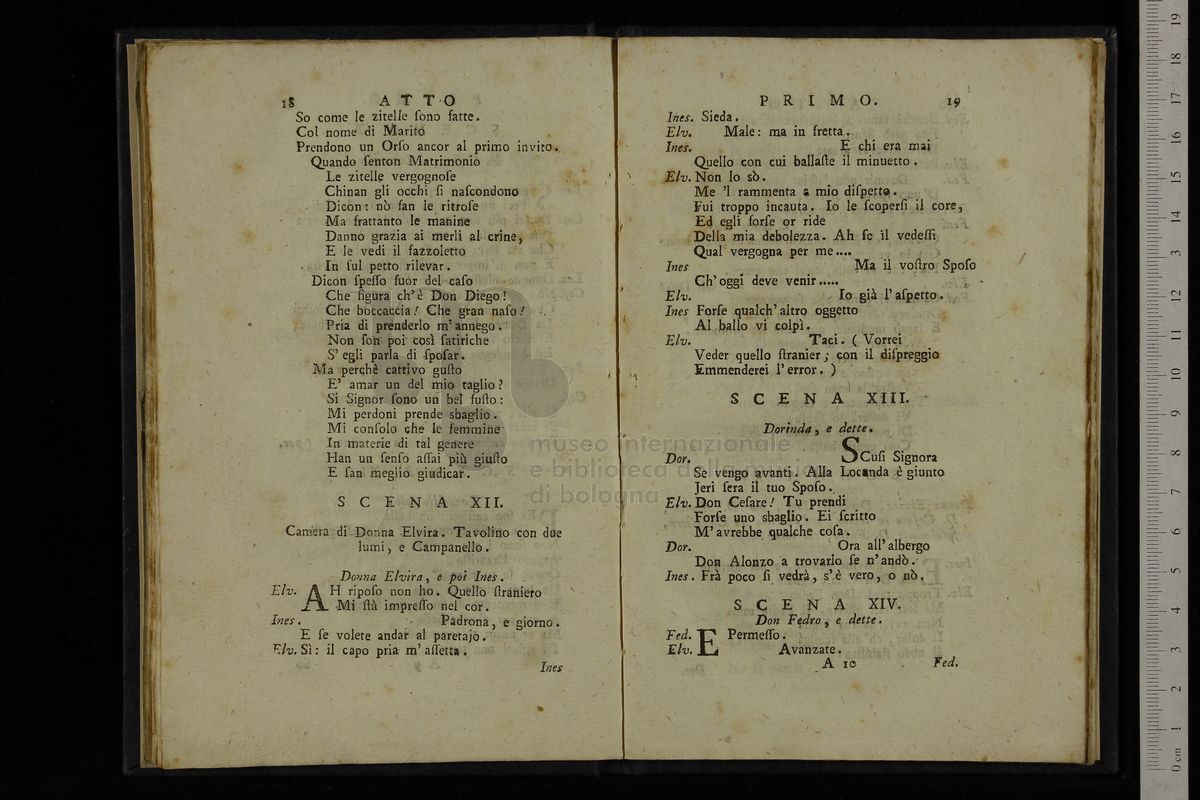 18 ATTO
So come le zitelle ſono fatte.
Col nome di Marito
Prendono un Orſo ancor al primo invito.
Quando ſenton Matrimoniò
Le zitelle vergognoſe
Chinan gli occhi ſi naſcondono
Dicon: nò fan le ritroſe
Ma frattanto le manine
Danno grazia ai merli al crine,
E le vedi il fazzoletto
In ſul petto rilevar.
Dicon ſpeſſo fuor del caſo
Che figura ch'è Don Diego!
Che boccaccia! Che gran naſo!
Pria di prenderlo m'annego.
Non ſon poi così ſatiriche
S'egli parla di ſpoſar.
Ma perchè cattivo guſto
E' amar un del mio taglio?
Si Signor ſono un bel fuſto:
Mi perdoni prende sbaglio.
Mi conſolo che le femmine
In materie di tal genere
Han un ſenſo aſſai più giuſto
E ſan meglio giudicar.
SCENA XII.
Camera di Donna Elvira. Tavolino con due
lumi, e Campanello.
Donna Elvira, e poi Ines.
Elv. AH ripoſo non ho. Quello ſtraniero
Mi ſtà impreſſo nel cor.
Ines. Padrona, e giorno.
E ſe volete andar al paretajo.
Elv. Sì: il capo pria m'aſſetta.
Ines
PRIMO. 19
Ines. Sieda.
Elv. Male: ma in fretta.
Ines. E chi era mai
Quello con cui ballaſte il minuetto.
Elv. Non lo sò.
Me 'l rammenta a mio diſpetto.
Fui troppo incauta. Io le ſcoperſi il core,
Ed egli forſe or ride
Della mia debolezza. Ah ſe il vedeſſi
Qual vergogna per me....
Ines Ma il voſtro Spoſo
Ch'oggi deve venir.....
Elv. Io già l'aſpetto.
Ines Forſe qualch'altro oggetto
Al ballo vi colpì.
Elv. Taci. (Vorrei
Veder quello ſtranier; con il diſpreggio
Emmenderei l'error.)
SCENA XIII.
Dorinda, e dette.
Dor. SCuſi Signora
Se vengo avanti. Alla Locanda è giunto
Jeri ſera il tuo Spoſo.
Elv. Don Ceſare! Tu prendi
Forſe uno sbaglio. Ei ſcritto
M'avrebbe qualche coſa.
Dor. Ora all'albergo
Don Alonzo a trovarlo ſe n'andò.
Ines. Frà poco ſi vedrà, s'è vero, o nò.
SCENA XIV.
Don Fedro, e dette.
Fed. E Permeſſo.
Elv. Avanzate.
A 10 Fed.
museo internazionale
e biblioteca della musica
di bologna
0 cm 1 2 3 4 5 6 7 8 9 10 11 12 13 14 15 16 17 18 19